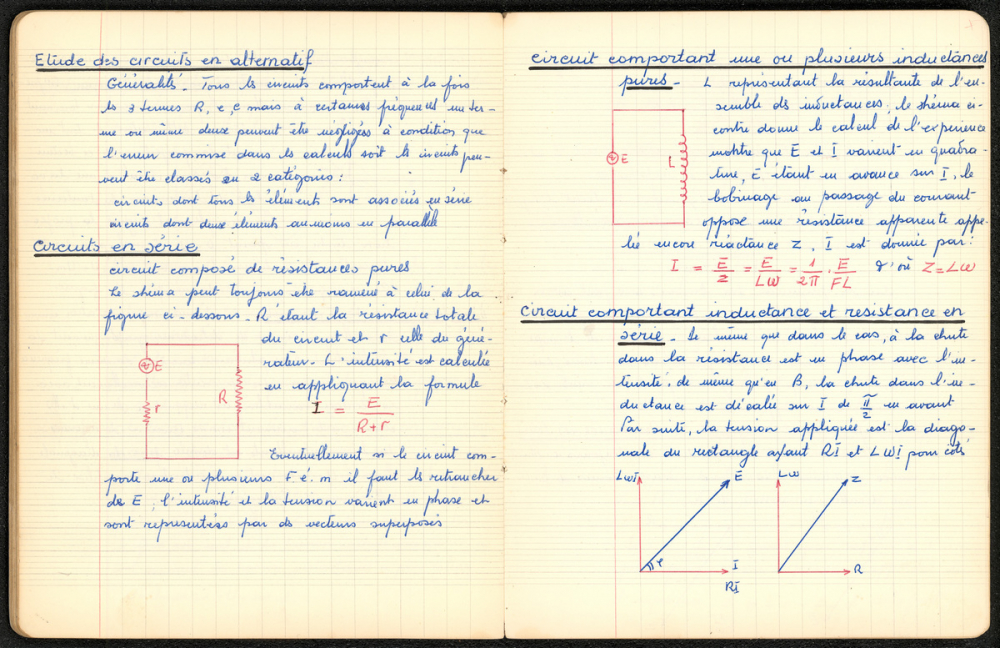 Etude des circuits en alternatif
Généralité. Tous ls circuits comportent à la fois
ls 3 termes R, mais à certaines fréquences un ter-
me ou même deux peuvent être négligés à condition que
l'erreur commise dans ls calculs soit ls circuits peu-
vent être classés en 2 catégories :
circuits dont tous ls éléments sont associés en série
circuits dont deux éléments au moins en parallèle
Circuits en série
circuit composé de résistances pures
Le shima peut toujours être ramené à celui de la
figure ci-dessous. R étant la résistance totale
du circuit et r celle du géné-
rateur. L'intensité est calculée
en appliquant la formule
E
r
R
I = E / R+r
Eventuellement si le circuit com-
porte une ou plusieurs F é. m il faut ls retrancher
de E, l'intensité et la tension varient en phase et
sont représentées par ds vecteurs superposés
circuit comportant une ou plusieurs inductances
pures - L représentant la résultante de l'en-
semble ds inductances, le shéma ci-
contre donne le calcul de l'experience
montre que E et I varient en quadra-
ture, E étant en avance sur I, le
bobinage au passage du courant
oppose une résistance apparente appe-
lée encore réactance Z. I est donnée par :
E
L
I = E/Z = E/Lω = 1/2π . E/FL d'où Z = Lω
Circuit comportant inductance et resistance en
série. le même que dans le cas, à la chute
dans la résistance est en phase avec l'in-
tensité, de même qu'en B, la chute dans l'in-
ductance est décalée sur I de π/2 en avant
Par suite, la tension appliquée est la diago-
nale du rectangle ayant RI et LωI pour côtés
LωI
E
φ
I
RI
Lω
Z
R